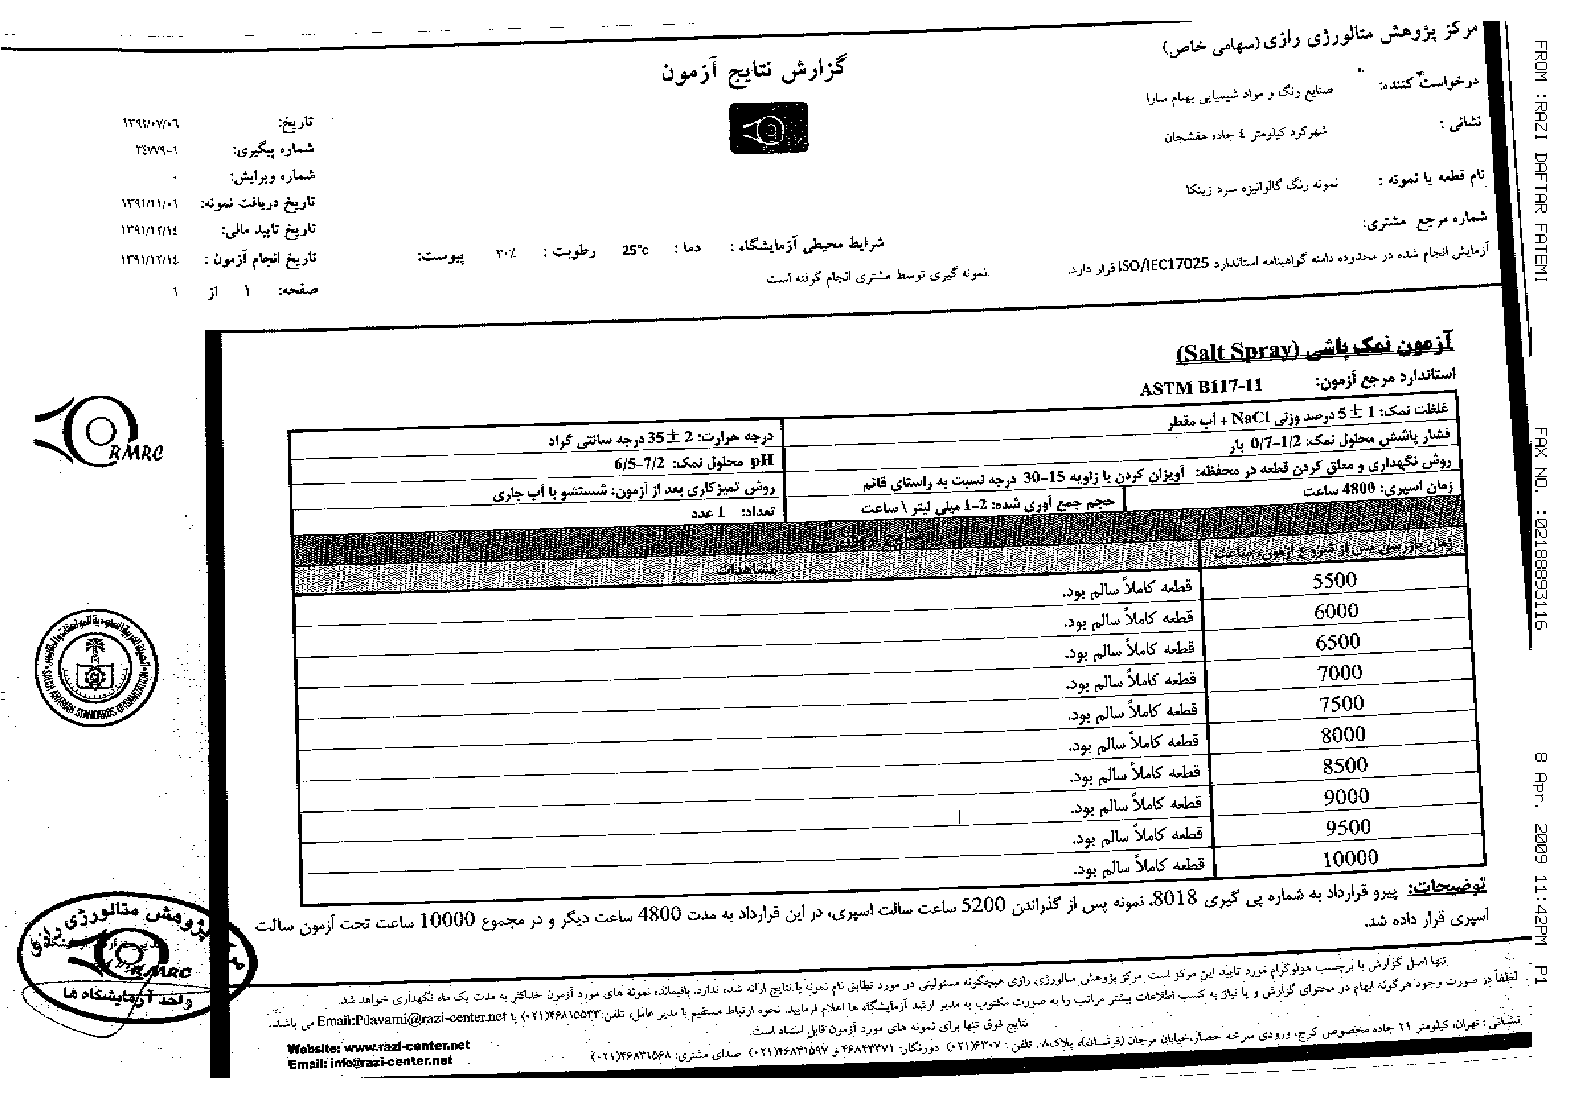 مرکز پژوهش متالورژی رازی (سهامی خاص)
گزارش نتایج آزمون
درخواست کننده: صنایع رنگ و مواد شیمیایی بهنام سارا
نشانی : شهرکرد کیلومتر ٤ جاده هفشجان
نام قطعه یا نمونه : نمونه رنگ گالوانیزه سرد زینکا
شماره مرجع مشتری:
آزمایش انجام شده در محدوده دامنه گواهینامه استاندارد ISO/IEC17025 قرار دارد.
شرایط محیطی آزمایشگاه : دما : 25°c رطوبت : ٣٠٪ پیوست:
نمونه گیری توسط مشتری انجام گرفته است
تاریخ: ١٣٩٢/٠٧/٠٦
شماره پیگیری:
شماره ویرایش: ٠
تاریخ دریافت نمونه: ١٣٩١/١١/٠٦
تاریخ تایید مالی: ١٣٩١/١٢/١٤
تاریخ انجام آزمون : ١٣٩١/١٢/١٤
صفحه: ١ از ١
آزمون نمک پاشی (Salt Spray)
استاندارد مرجع آزمون: ASTM B117-11
غلظت نمک: 1 ± 5 درصد وزنی NaCl + آب مقطر
درجه حرارت: 2 ± 35 درجه سانتی گراد
فشار پاشش محلول نمک: 1/2–0/7 بار
pH محلول نمک: 7/2–6/5
روش نگهداری و معلق کردن قطعه در محفظه: آویزان کردن با زاویه 15–30 درجه نسبت به راستای قائم
روش تمیزکاری بعد از آزمون: شستشو با آب جاری
زمان اسپری: 4800 ساعت
حجم جمع آوری شده: 2–1 میلی لیتر \ ساعت
تعداد: 1 عدد
مشاهدات
5500 قطعه کاملاً سالم بود.
6000 قطعه کاملاً سالم بود.
6500 قطعه کاملاً سالم بود.
7000 قطعه کاملاً سالم بود.
7500 قطعه کاملاً سالم بود.
8000 قطعه کاملاً سالم بود.
8500 قطعه کاملاً سالم بود.
9000 قطعه کاملاً سالم بود.
9500 قطعه کاملاً سالم بود.
10000 قطعه کاملاً سالم بود.
توضیحات: پیرو قرارداد به شماره پی گیری 8018، نمونه پس از گذراندن 5200 ساعت سالت اسپری، در این قرارداد به مدت 4800 ساعت دیگر و در مجموع 10000 ساعت تحت آزمون سالت
اسپری قرار داده شد.
تنها اصل گزارش با برچسب هولوگرام مورد تایید این مرکز است. مرکز پژوهش متالورژی رازی هیچگونه مسئولیتی در مورد تطابق نام نمونه با نتایج ارائه شده، ندارد. باقیمانده نمونه های مورد آزمون حداکثر به مدت یک ماه نگهداری خواهد شد.
لطفاً در صورت وجود هرگونه ابهام در محتوای گزارش و یا نیاز به کسب اطلاعات بیشتر مراتب را به صورت مکتوب به مدیر ارشد آزمایشگاه ها اعلام فرمایید. نحوه ارتباط مستقیم با مدیر عامل، تلفن: می باشد.
نتایج فوق تنها برای نمونه های مورد آزمون قابل استناد است.
نشانی: تهران، کیلومتر ٢١ جاده مخصوص کرج، ورودی سرخه حصار، خیابان مرجان
Website: www.razi-center.net
Email: info@razi-center.net
RMRC
مرکز پژوهش متالورژی رازی
RMRC
واحد آزمایشگاه ها
FROM :RAZI DAFTAR FATEMI FAX NO. :02188893116 8 Apr. 2009 11:42PM P1